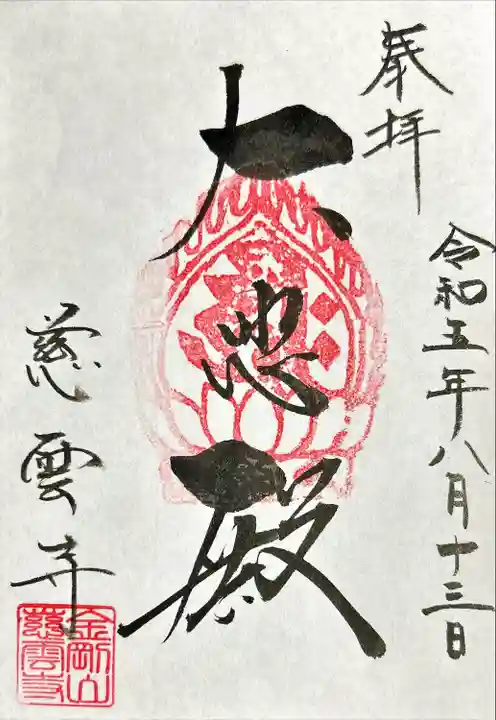 奉拝
令和五年八月十三日
大悲殿
慈雲寺
金剛山
慈雲寺